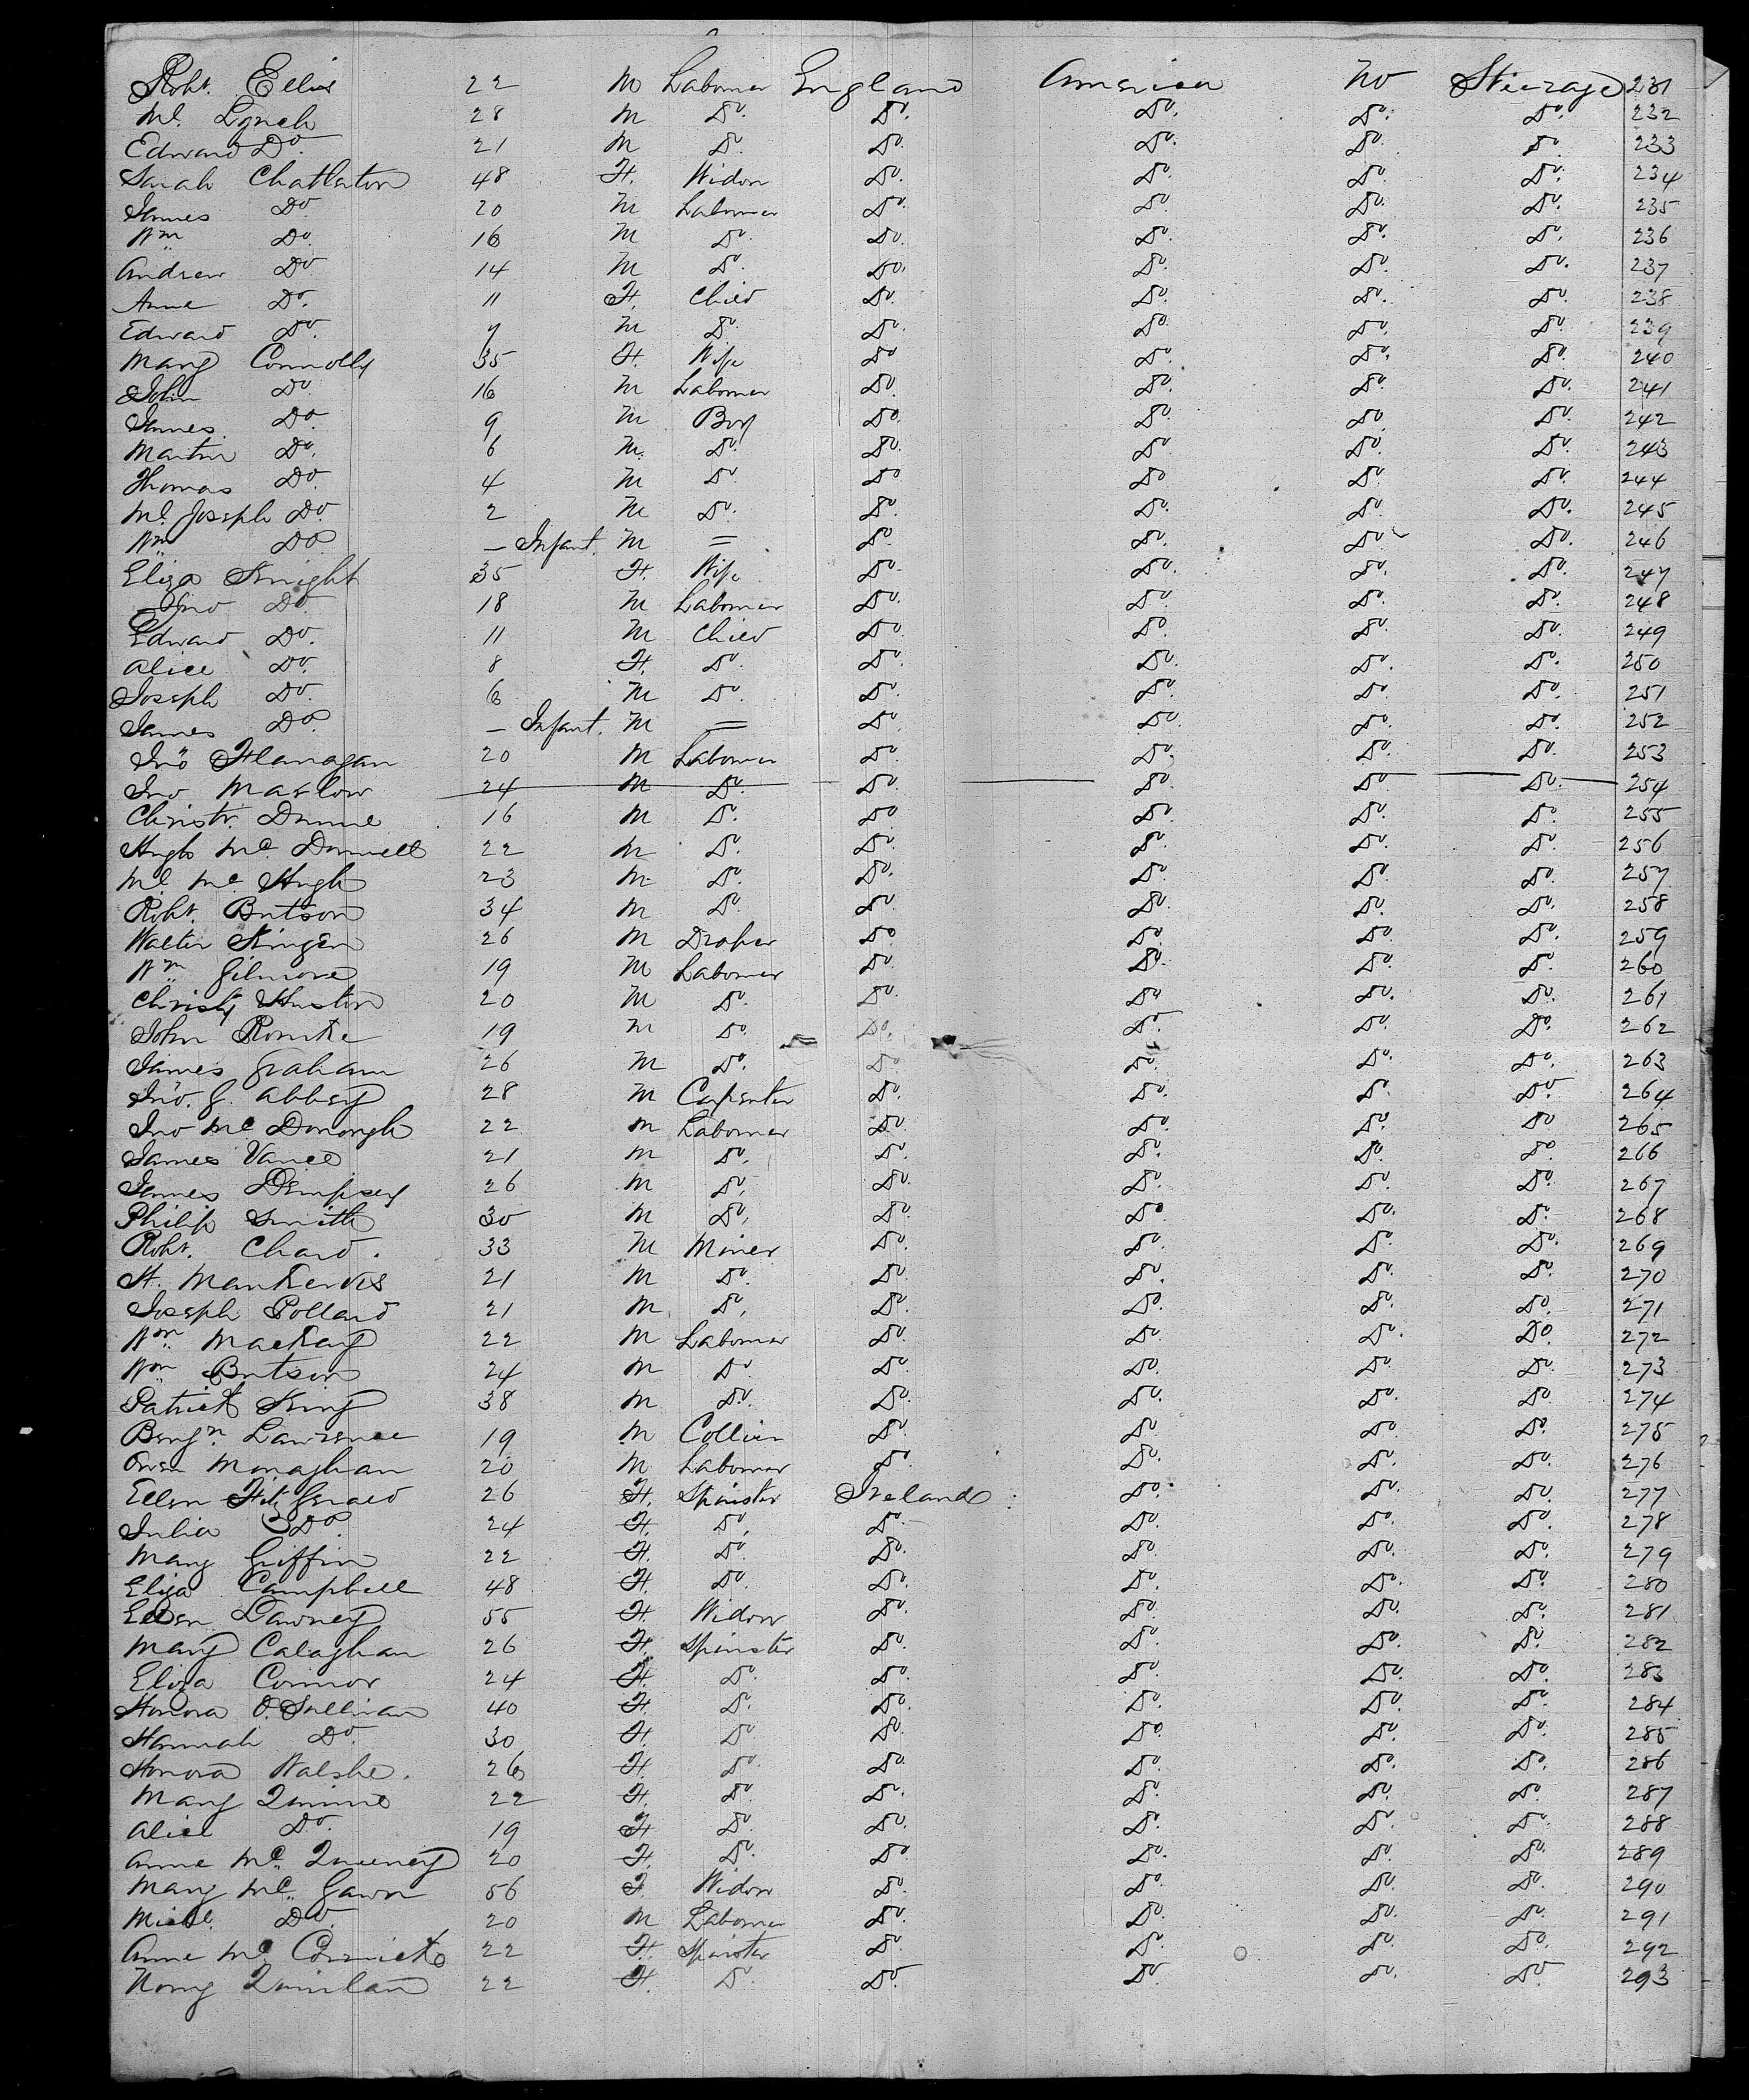 Robt. Ellis 22 M Labourer England America No Steerage 231
Ml. Lynch 28 M Do. Do. Do. Do. Do. 232
Edward Do. 21 M Do. Do. Do. Do. Do. 233
Sarah Chatterton 48 F. Widow Do. Do. Do. Do. 234
James Do. 20 M Labourer Do. Do. Do. Do. 235
Wm Do. 16 M Do. Do. Do. Do. Do. 236
Andrew Do. 14 M Do. Do. Do. Do. Do. 237
Anne Do. 11 F. Child Do. Do. Do. Do. 238
Edward Do. 7 M Do. Do. Do. Do. Do. 239
Mary Connolly 35 F. Wife Do Do. Do. Do. 240
John Do 16 M Labourer Do. Do. Do. Do. 241
James Do. 9 M Boy Do. Do. Do. Do. 242
Martin Do. 6 M. Do. Do. Do. Do. Do. 243
Thomas Do. 4 M Do Do Do Do. Do. 244
Ml. Joseph Do. 2 M Do. Do. Do. Do. Do. 245
Wm Do — Infant. M = Do. Do. Do. Do. 246
Eliza Knight 35 F. Wife Do. Do. Do. Do. 247
Jno Do. 18 M Labourer Do. Do. Do. Do. 248
Edward Do. 11 M Child Do. Do. Do. Do. 249
Alice Do. 8 F. Do. Do. Do. Do. Do. 250
Joseph Do. 6 M Do. Do. Do. Do. Do. 251
James Do — Infant. M = Do. Do. Do. Do. 252
Jno Flanagan 20 M Labourer Do. Do. Do. Do. 253
Jno Marlow 24 M Do. Do. Do. Do. Do. 254
Christr. Dunne 16 M Do. Do Do. Do. Do. 255
Hugh Mc. Donnell 22 M Do. Do. Do. Do. Do. 256
Ml. Mc Hugh 23 M Do. Do. Do. Do. Do. 257
Robt. Butson 34 M Do. Do. Do. Do. Do. 258
Walter 26 M Draper Do Do. Do. Do. 259
Wm Gilmore 19 M Labourer Do. Do. Do. Do. 260
Christy Huston 20 M Do. Do. Do Do. Do. 261
John Rourke 19 M Do. Do. Do. Do. Do. 262
James Graham 26 M Do. Do Do. Do. Do. 263
Jno. G. Abbey 28 M Carpenter Do. Do. Do. Do. 264
Jno Mc Donough 22 M Labourer Do Do. Do. Do 265
James Vance 21 M Do. Do. Do. Do. Do. 266
James Dempsey 26 M Do. Do. Do. Do. Do. 267
Philip Smith 30 M Do. Do. Do Do. Do. 268
Robt. Chard. 33 M Miner Do. Do. Do. Do. 269
H. Mankervis 21 M Do. Do. Do. Do. Do. 270
Joseph Pollard 21 M Do. Do. Do. Do. Do. 271
Wm Mackay 22 M Labourer Do. Do. Do. Do. 272
Wm Butson 24 M Do Do. Do. Do. Do. 273
Patrick King 38 M Do. Do. Do. Do. Do. 274
Benjn. Lawrence 19 M Collier Do. Do. Do. Do. 275
Owen Monaghan 20 M Labourer Do. Do. Do. Do. 276
Ellen Fitz Gerald 26 F. Spinster Ireland Do. Do. Do. 277
Julia Do. 24 F. Do. Do. Do. Do. Do. 278
Mary Griffin 22 F. Do. Do. Do. Do. Do. 279
Eliza Campbell 48 F. Do. Do. Do. Do. Do. 280
Ellen Dawney 55 F. Widow Do. Do. Do. Do. 281
Mary Calaghan 26 F. Spinster Do. Do. Do. Do. 282
Eliza Connor 24 F. Do. Do. Do. Do. Do. 283
Honora O. Sullivan 40 F. Do. Do. Do. Do. Do. 284
Hannah Do. 30 F. Do. Do. Do. Do. Do. 285
Honora Walshe. 26 F. Do. Do. Do. Do. Do. 286
Mary Quinn 22 F. Do. Do. Do. Do. Do. 287
Alice Do. 19 F Do. Do. Do. Do. Do. 288
Anne Mc. Queeney 20 F. Do. Do Do. Do. Do. 289
Mary Mc. Gawn 56 F. Widow Do. Do. Do. Do. 290
Michl. Do. 20 M Labourer Do. Do. Do. Do. 291
Anne Mc. Cormick 22 F. Spinster Do. Do. Do. Do. 292
Nony Quinlan 22 F. Do. Do. Do Do. Do 293